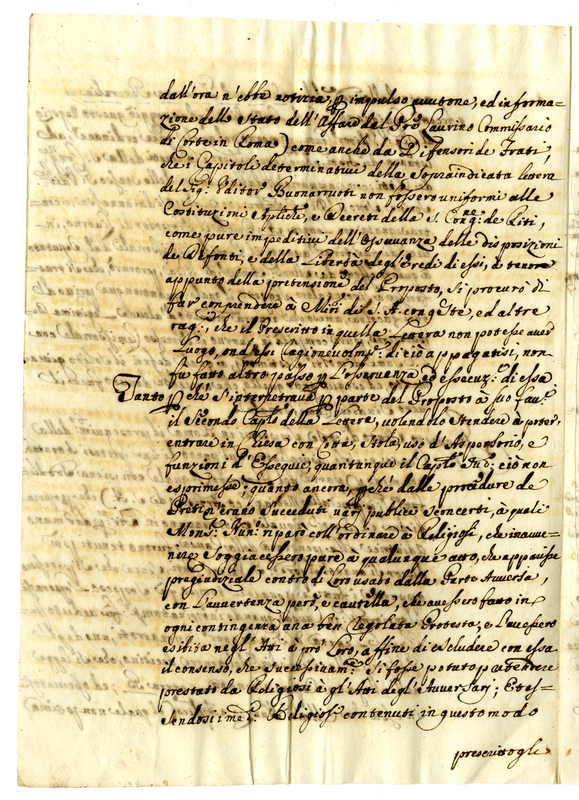 dall'ora n'ebbe notizia, p impulso avutone, ed informa=
zione dello Stato dell'Affare dal Pre Laurino Commissario
di Corte in Roma) come anche da Difensori de Frati,
che i Capitoli determinativi della Sopraindicata lettera
del Sig.r Editor Buonarruoti non fossero uniformi alle
Costituzioni Apliche, e Decreti della S. Congne de Riti,
come pure impeditivi dell'Osservanza delle disposizioni
de Defonti, e della Libertà degl'Eredi di essi, à tenore
appunto della pretensione del Proposto, Si procurò di
far comprendere à Mìri di S. A. con queste, ed altre
rag:, che il Prescritto in quella Lettera non potesse aver
Luogo, ond'essi ragionevolmte di ciò appagatisi, non
fu fatto altro passo p l'osservanza ed esecuz: di essa
Tanto p che S'interpetrava p parte del Proposto à suo fav:
il Secondo Caplo della Lettera, volendolo Stendere à poter
entrare in Chiesa con Cotta, Stola, uso d'Aspensorio, e
funzioni d'Esequie, quantunque il Caplo Sud: ciò non
esprimesse; quanto ancora, pché dalle procedure de
Preti erano Succeduti varj publici Sconcerti, à quali
Mons.r Nunz: riparò coll'ordinare à Religiosi, che in avve=
nire Soggiacessero pure à qualunque atto, che apparisse
pregiudiziale contro di Loro usato dalla Parte Avversa,
con l'avvertenza però, e cautella, che avessero fatto in
ogni contingenza una ben regolata Protesta, e l'avessero
esibita negl'Atti à prò Loro, a ffine di escludere con essa
il consenso, che Successivam: Si fosse potuto pretendere
prestato da Religiosi à gl'Atti degl'Avversarj; Et es=
Sendosi i med: Religiosi contenuti in questo modo
prescrittogli